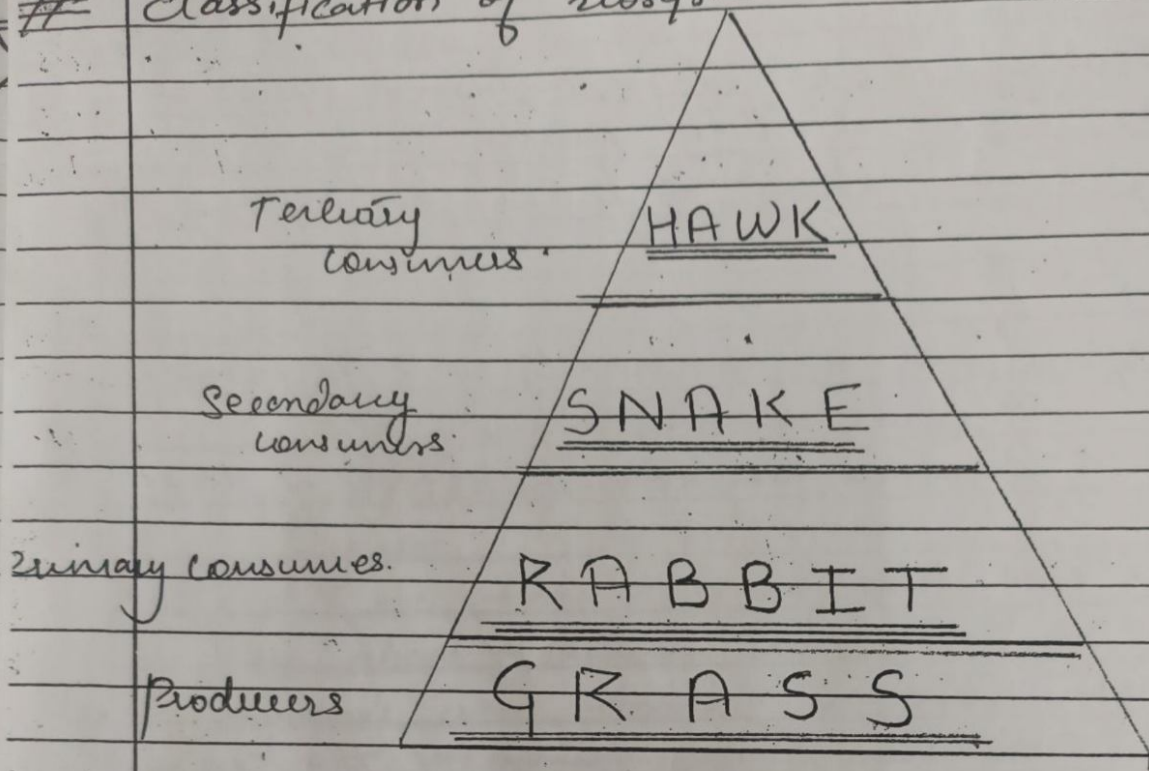 # Classification of
Tertiary HAWK
consumers.
Secondary SNAKE
consumers.
Primary consumers. RABBIT
Producers GRASS